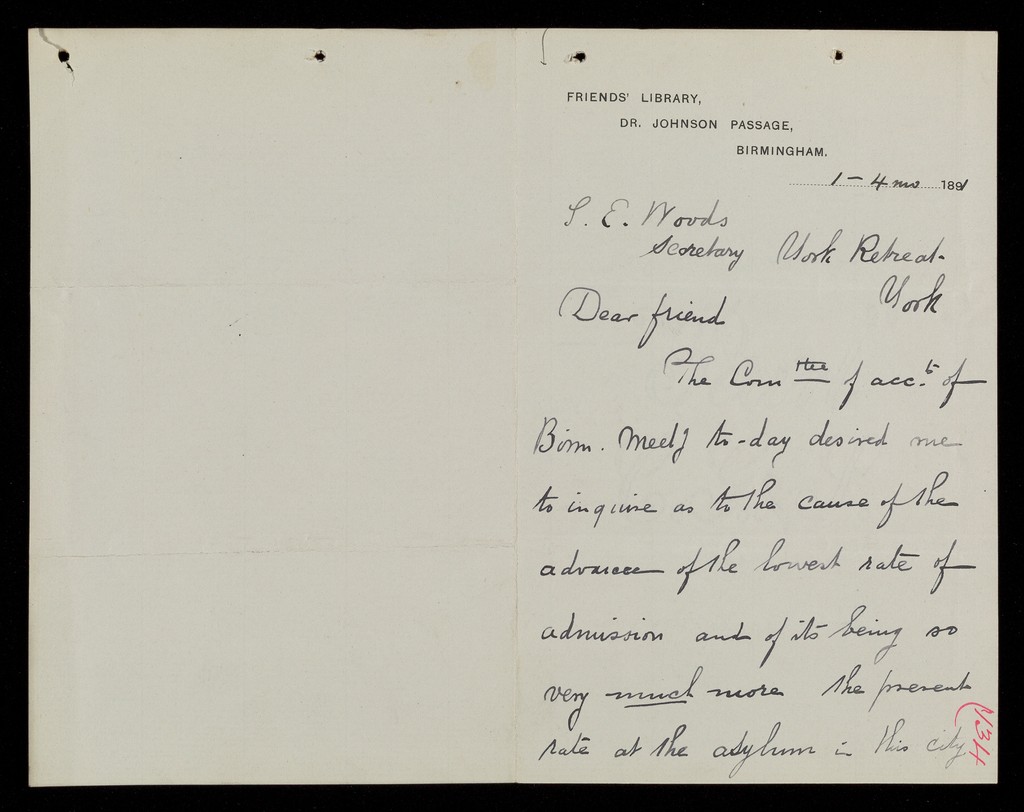 FRIENDS' LIBRARY,
DR. JOHNSON PASSAGE,
BIRMINGHAM.
1 - 4 mo 1891
S. E. Woods
Secretary York Retreat -
York
Dear friend
The Com ttee of acc.ts of
Birm. Meetg to-day desired me
to inquire as to the cause of the
advance of the lowest rate of
admission and of its being so
very much more the present
rate at the asylum in this city